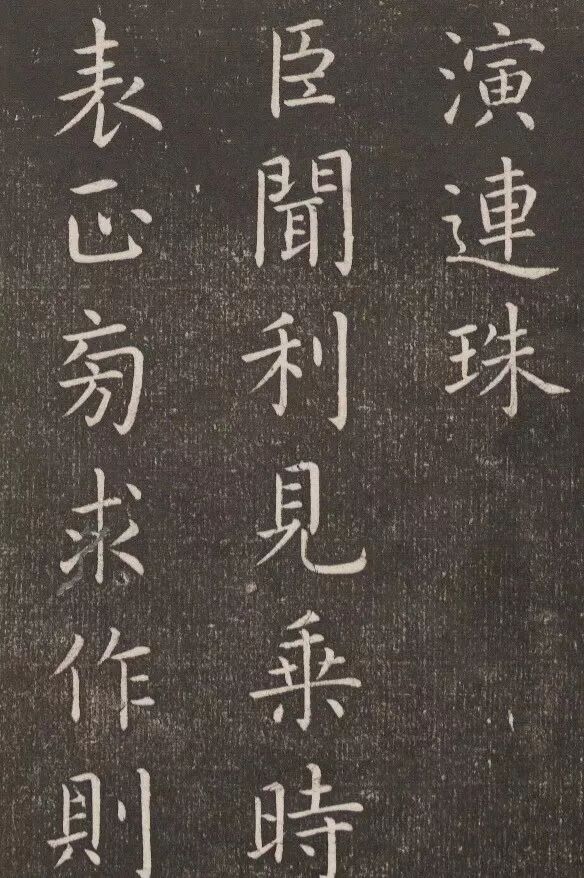 演連珠
臣聞利見乗時
表正旁求作則